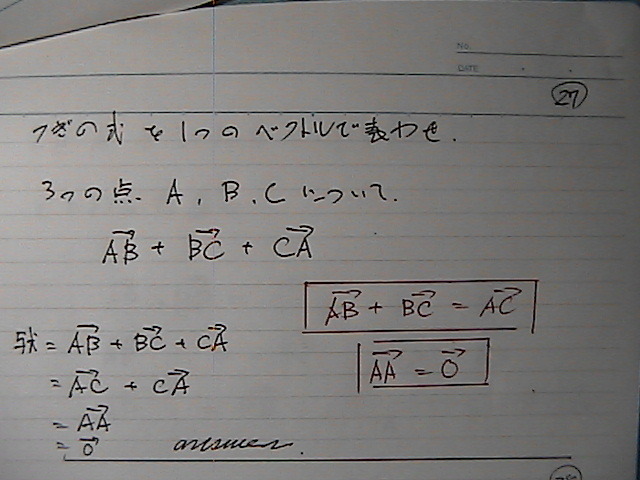 NO.
DATE
27
つぎの式を1つのベクトルで表わせ.
3つの点 A, B, C について.
→AB + →BC + →CA
→AB + →BC = →AC
→AA = →0
与式 = →AB + →BC + →CA
= →AC + →CA
= →AA
= →0 answer.